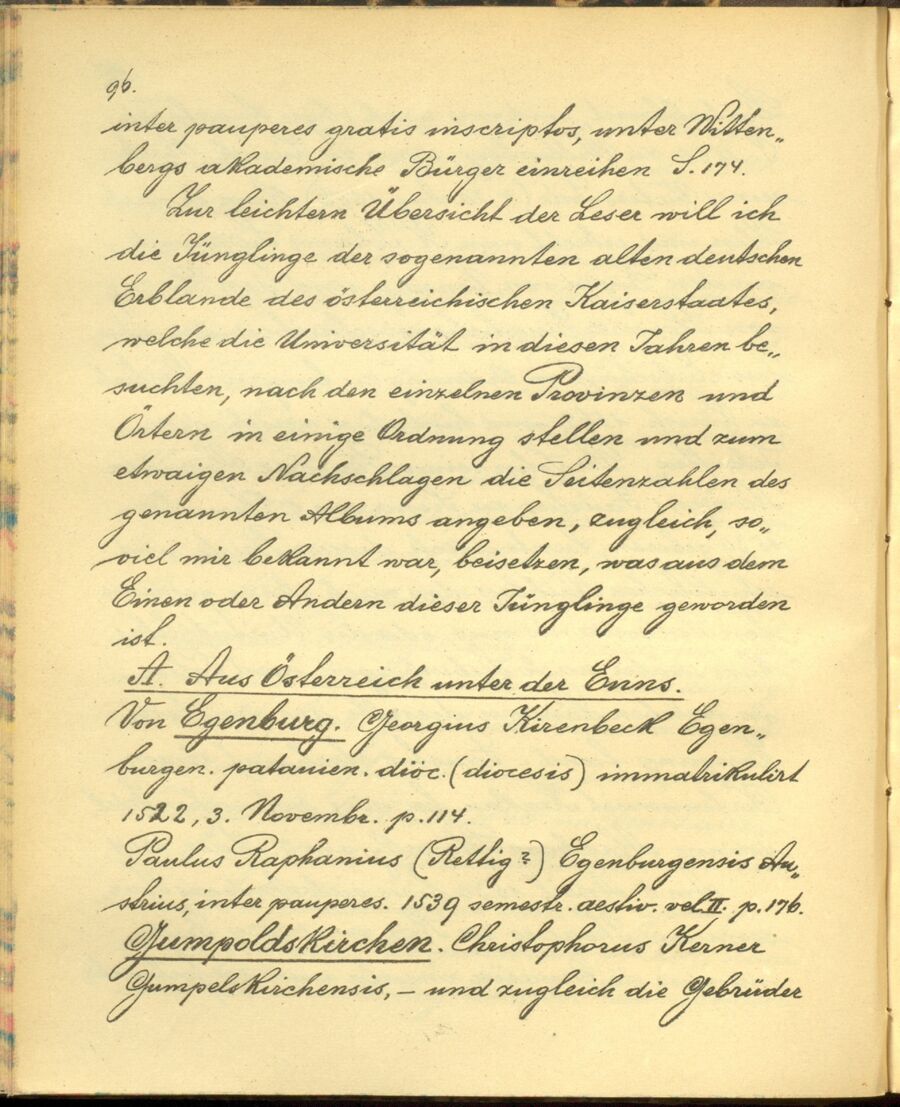 96.
inter pauperes gratis inscriptos, unter Witten„
bergs akademische Bürger einreihen S. 174.
Zur leichtern Übersicht der Leser will ich
die Jünglinge der sogenannten alten deutschen
Erblande des österreichischen Kaiserstaates,
welche die Universität in diesen Jahren be„
suchten, nach den einzelnen Provinzen und
Örtern in einige Ordnung stellen und zum
etwaigen Nachschlagen die Seitenzahlen des
genannten Albums angeben, zugleich, so„
viel mir bekannt war, beisetzen, was aus dem
Einen oder Andern dieser Jünglinge geworden
ist.
A. Aus Österreich unter der Enns.
Von Egenburg. Georgius Kirenbeck Egen„
burgen. patauien. diöc. (diocesis) immatrikulirt
1522, 3. Novembr. p. 114.
Paulus Raphanius (Rettig?) Egenburgensis Au„
strius, inter pauperes. 1539 semestr. aestiv. vel II. p. 176.
Gumpoldskirchen. Christophorus Kerner
Gumpelskirchensis, – und zugleich die Gebrüder